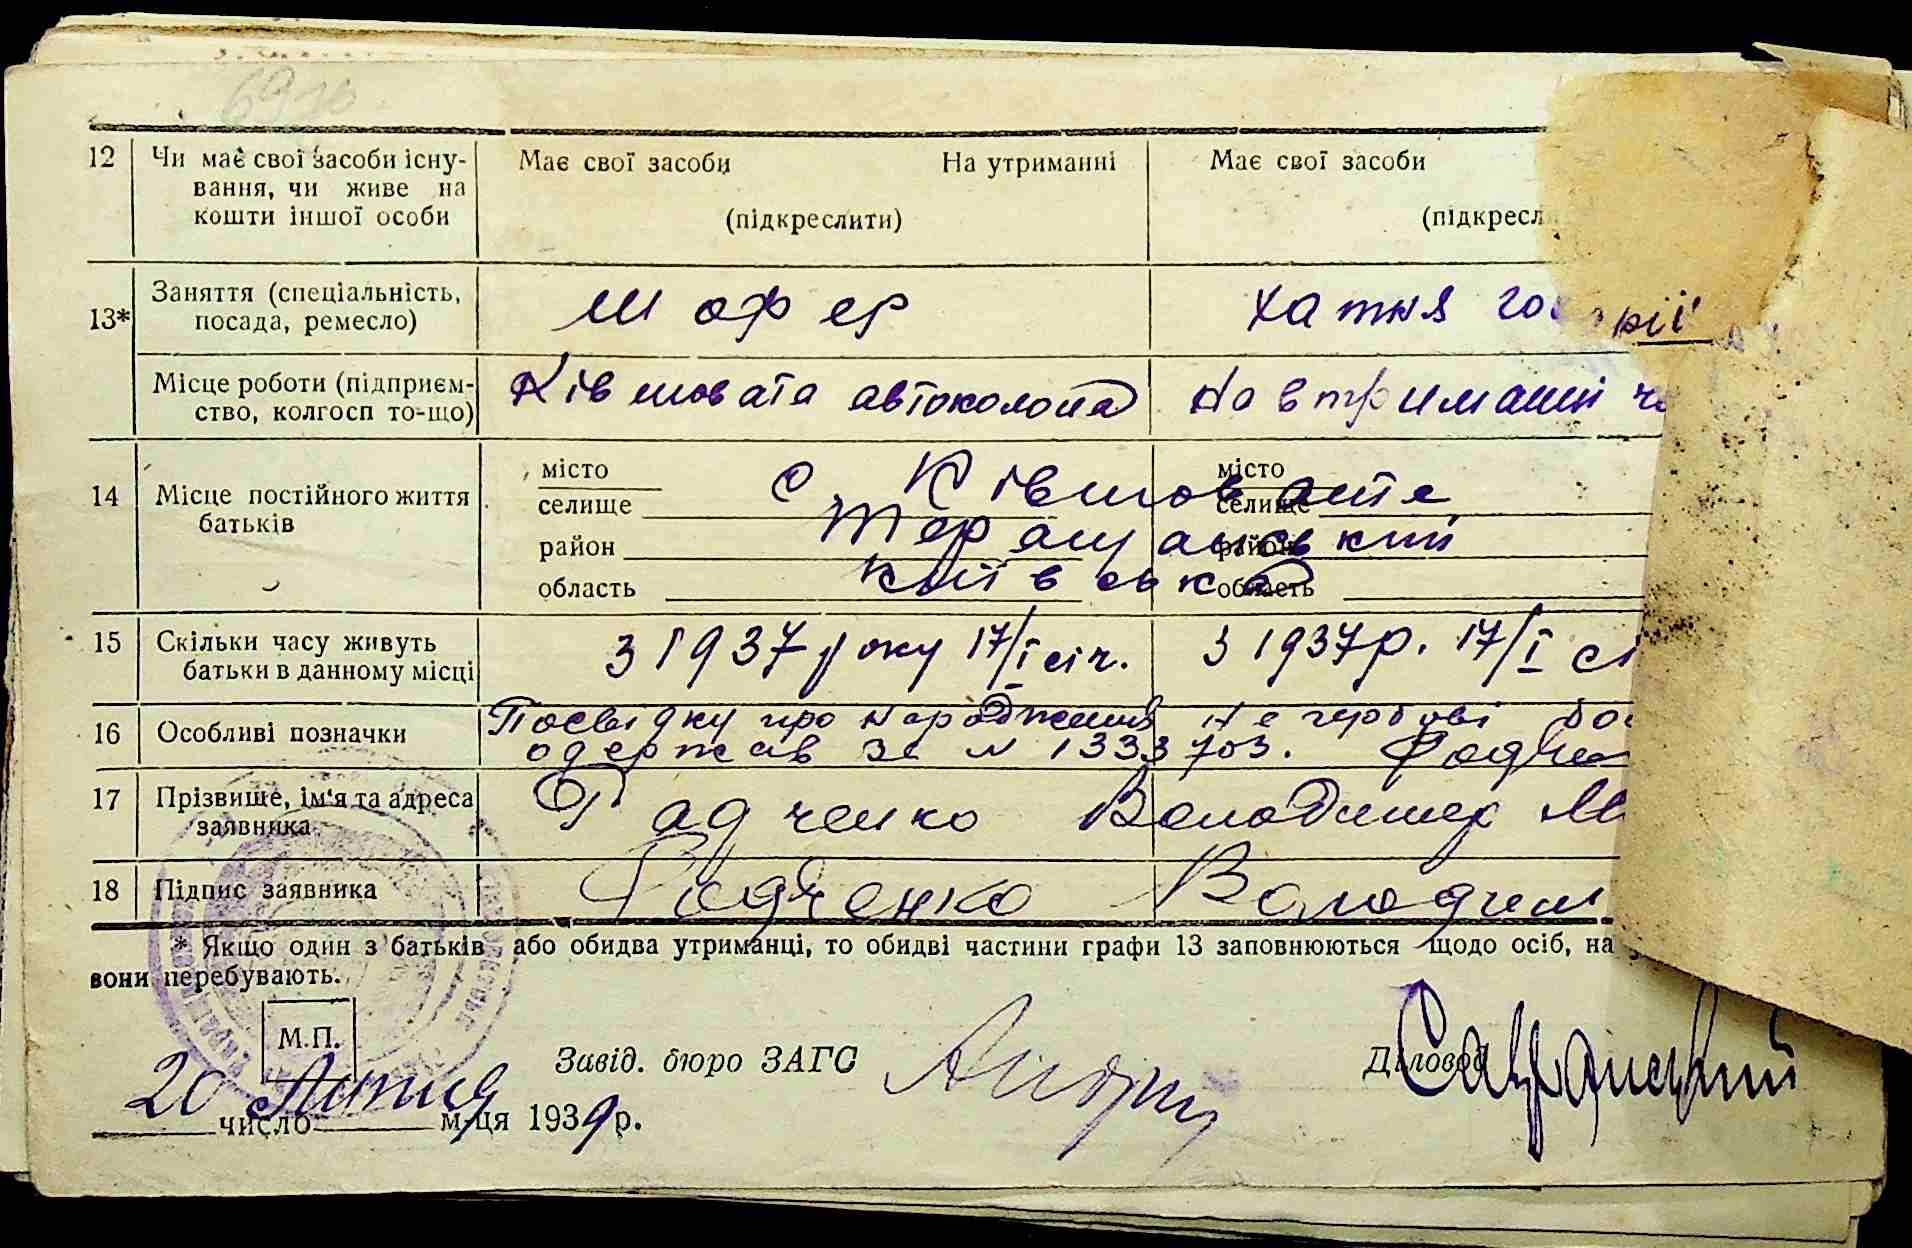 12 Чи має свої засоби існу- Має свої засоби На утриманні Має свої засоби
вання, чи живе на
кошти іншої особи (підкреслити) (підкресл
13* Заняття (спеціальність, посада, ремесло) шофер хатня
Місце роботи (підприєм- Ківшовата автоколона На втриманні
ство, колгосп то-що)
14 Місце постійного життя батьків
місто с. Ківшовата місто
селище селище
район Таращанський район
область Київська область
15 Скільки часу живуть з 1937 року 17/I січ. з 1937 р. 17/I сі
батьки в данному місці
16 Особливі позначки Посвідку про народження
одержав за № 1333703.
17 Прізвище, ім'я та адреса Радченко Володимер
заявника
18 Підпис заявника Радченко Володим
* Якщо один з батьків або обидва утриманці, то обидві частини графи 13 заповнюються щодо осіб, на
вони перебувають.
М.П.
Завід. бюро ЗАГС Діловод
20 число Липня м-ця 1939 р.